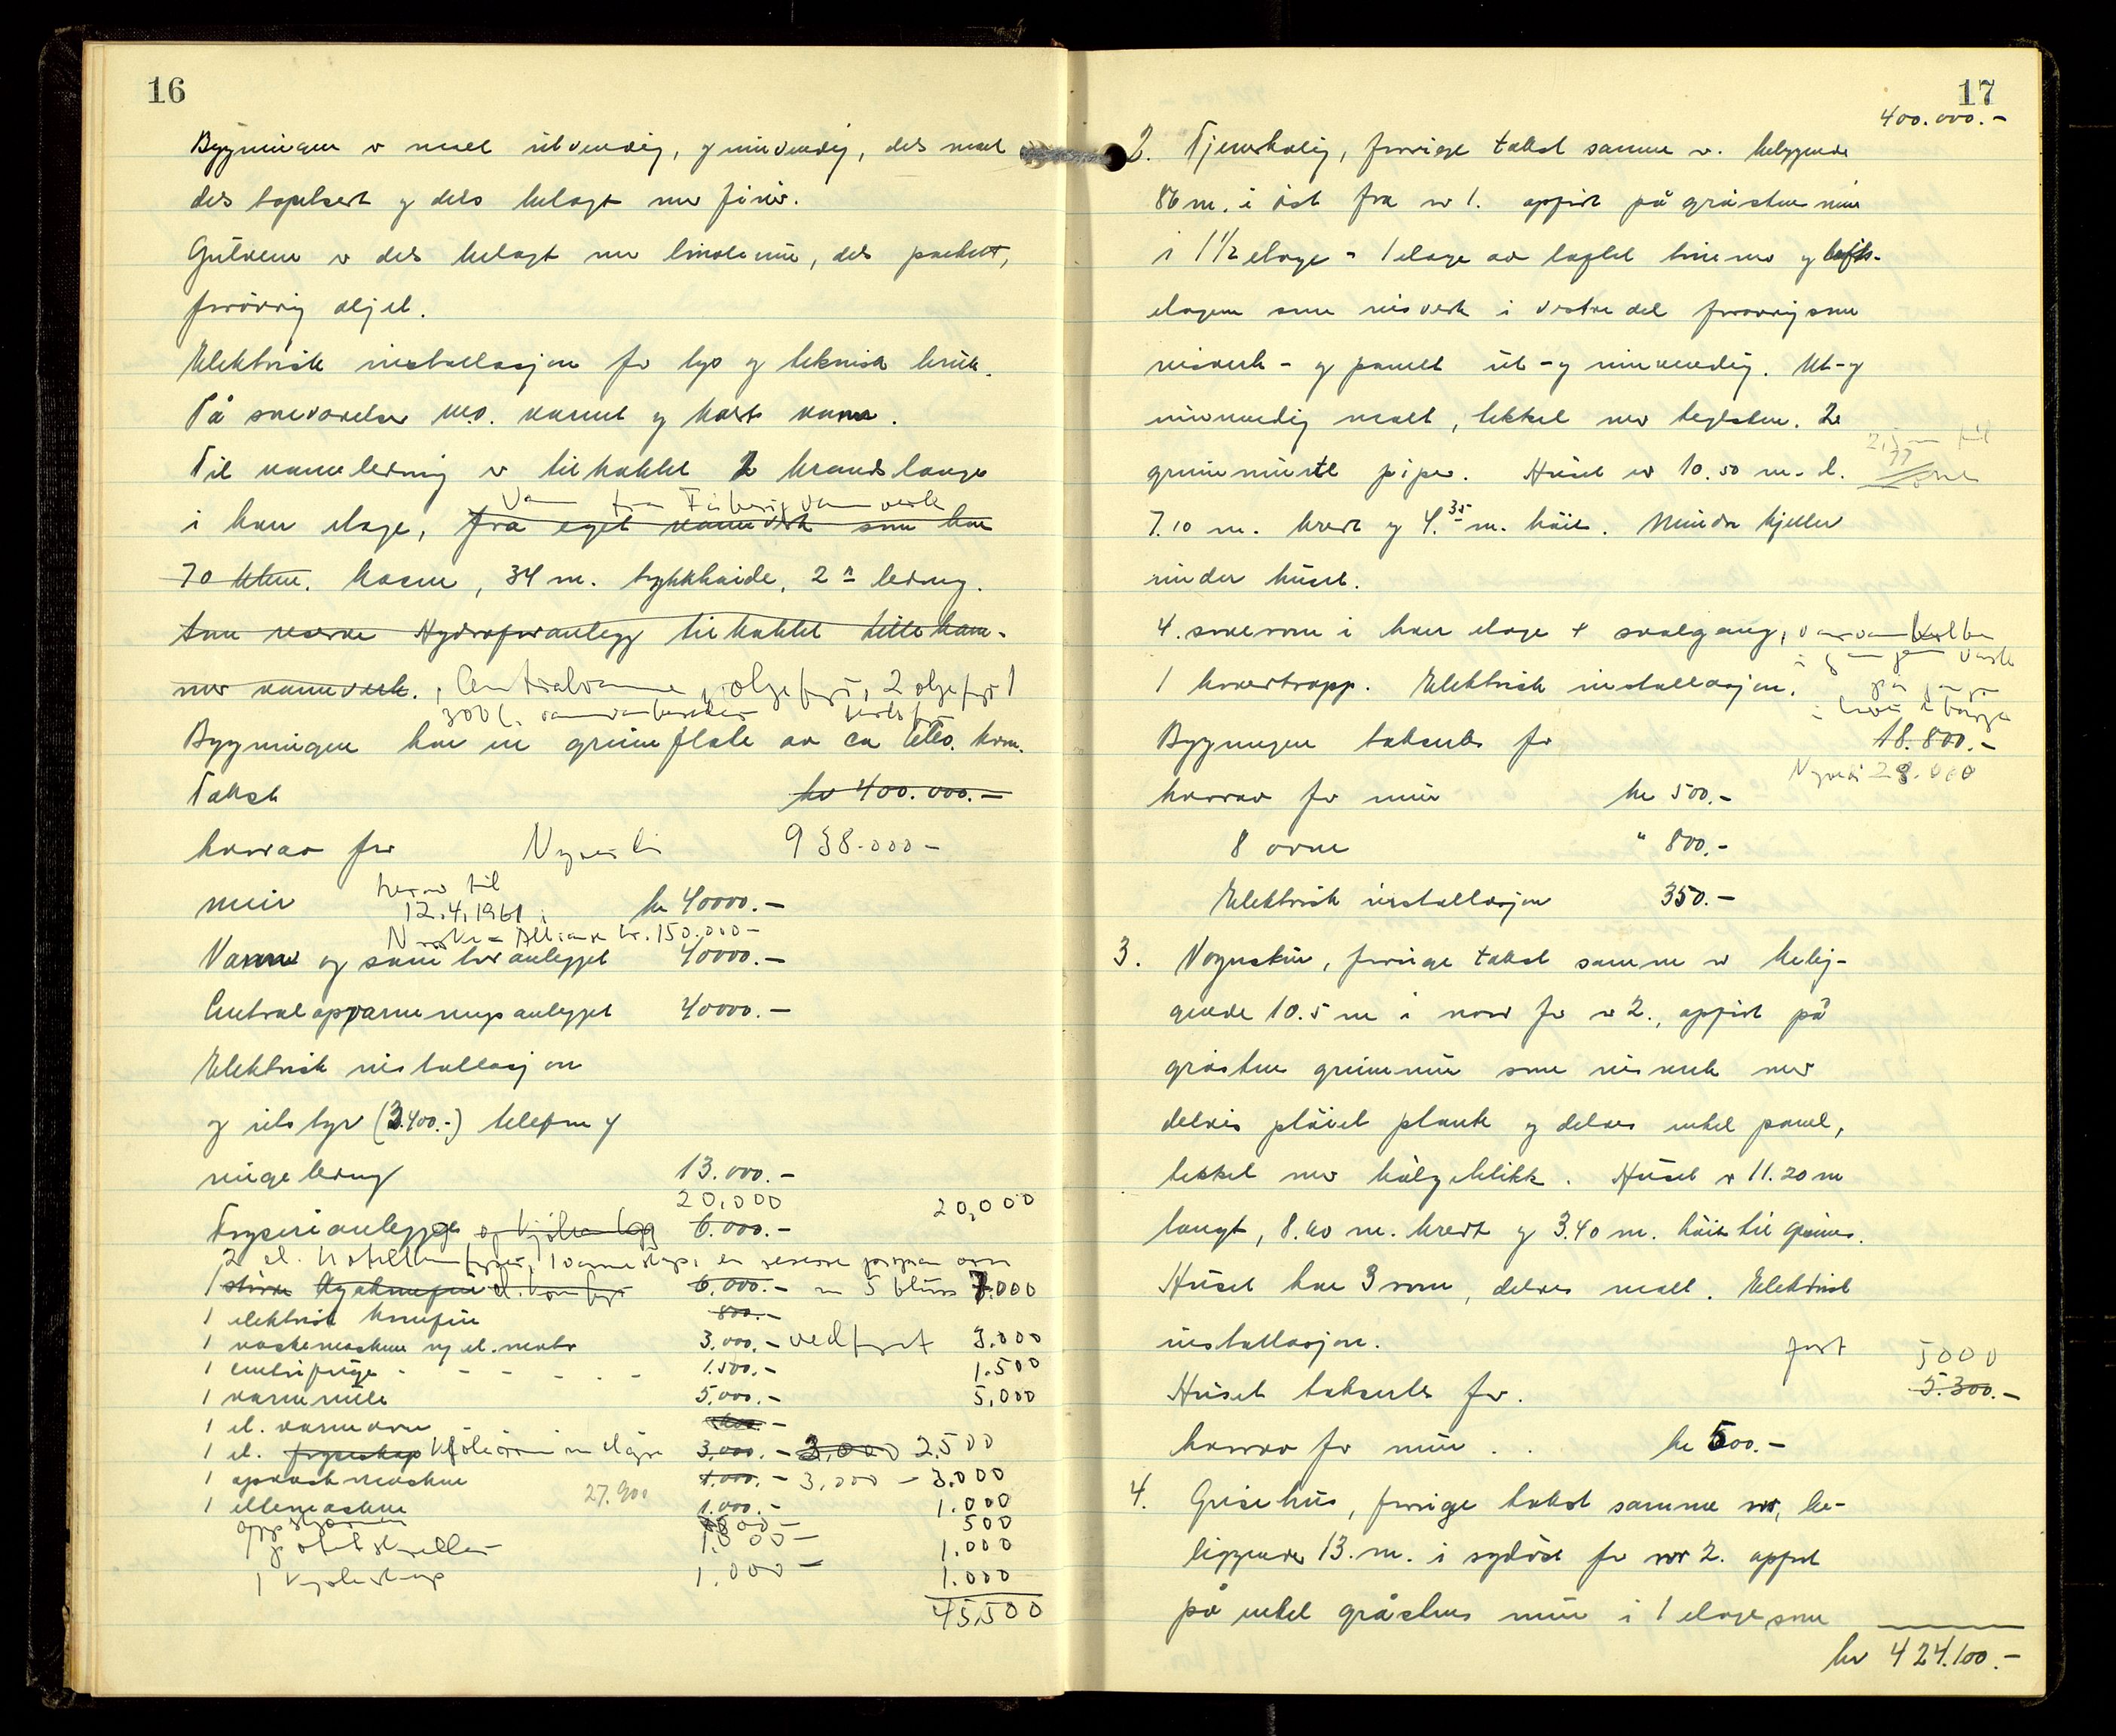 16
Bygningen er malt utvendig, og innvendig, dels malt
dels tapetsert og dels belagt med finér.
Gulvene er dels belagt med linoleum, dels parkett,
forøvrig oljet.
Elektrisk installasjon for lys og teknisk bruk.
På soveværelser m.o. varmt og koldt vann.
Til vannledning er tilkoblet 2 brandslanger
Vann fra Fåberg vannverk
i hver etage, fra eget vannverk som har
70 kbm. basseng, 34 m. trykkhøide, 2" ledning.
Som reserve Hydroforanlegg tilkoblet Lilleham-
mer vannverk. , Centralvarme, oljefyrt, 2 oljefyrt
300 l. varmtvannsbereder
Bygningen har en grunnflate av ca kvm.
Takst kr 400.000.-
hvorav for Nyverdi 938.000-
mur kr 40000.-
herav til
12.4.1961 i
Norske Alliance kr. 150.000-
Vann og sanitæranlegget 40000.-
Centralopvarmningsanlegget 40000.-
Elektrisk installasjon
og utstyr (3.400.-) telefon og
ringeledning 13.000.-
20,000 20,000
Fryserianlegget og kjøleanlegg 6.000.-
2 el. hotellkomfyrer, 1 varmeskap, en reserve propan ovn
1 større kjøkkenkomfyr el. komfyr 6.000.- m 5 bluss 7.000
1 elektrisk komfyr 800.-
1 vaskemaskin og el. motor 3.000.- vedfyrt 3.000
1 centrifuge - - - - - - 1.500.- 1.500
1 varmerulle 5.000.- 5,000
1 el. varmeovn -
1 el. fryseskap kjølerom i en etage 3.000.- 3,000 2.500
1 opvaskmaskin 4.000.- 3,000 - 3.000
1 eltemaskin 27.900 1.000.- 1.000
500
1 potetskreller 1.000- 1.000
1 kjøleskap 1.000- 1.000
45,500
17
400.000.-
2. Tjenerbolig, forrige takst samme nr. beliggende
86 m. i øst fra nr 1. oppført på gråsten mur
i 1½ etage - 1 etage av laftet tømmer og lofts-
etagen som reisverk i vestre del forøvrig som
reisverk - og panelt ut- og innvendig. Ut- og
innvendig malt, tekket med teglsten. 2
grunnmurte piper. Huset er 10.50 m. l.
7.10 m. bredt og 4.35 m. høit. Mindre kjeller
under huset.
4. soverom i hver etage + svalgang,
1 hovedtrapp. Elektrisk installasjon.
Bygningen takseres for 18.800.-
Nyverdi 28.000
hvorav for mur kr 500.-
8 ovne " 800.-
Elektrisk installasjon 350.-
3. Vognskur, forrige takst samme nr belig-
gende 10.5 m i nord for nr 2., oppført på
gråsten grunnmur som reisverk med
delvis pløiet plank og delvis enkel panel,
tekket med bølgeblikk. Huset er 11.20 m
langt, 8.60 m. bredt og 3.40 m. høit til gesims.
Huset har 3 rom, delvis malt. Elektrisk
installasjon.
5000
Huset takseres for. 5.300.-
hvorav for mur . . kr 500.-
4. Grisehus, forrige takst samme nr, be-
liggende 13. m. i sydøst for nr 2. oppført
på enkel gråstens mur i 1 etage som
kr 424.100.-